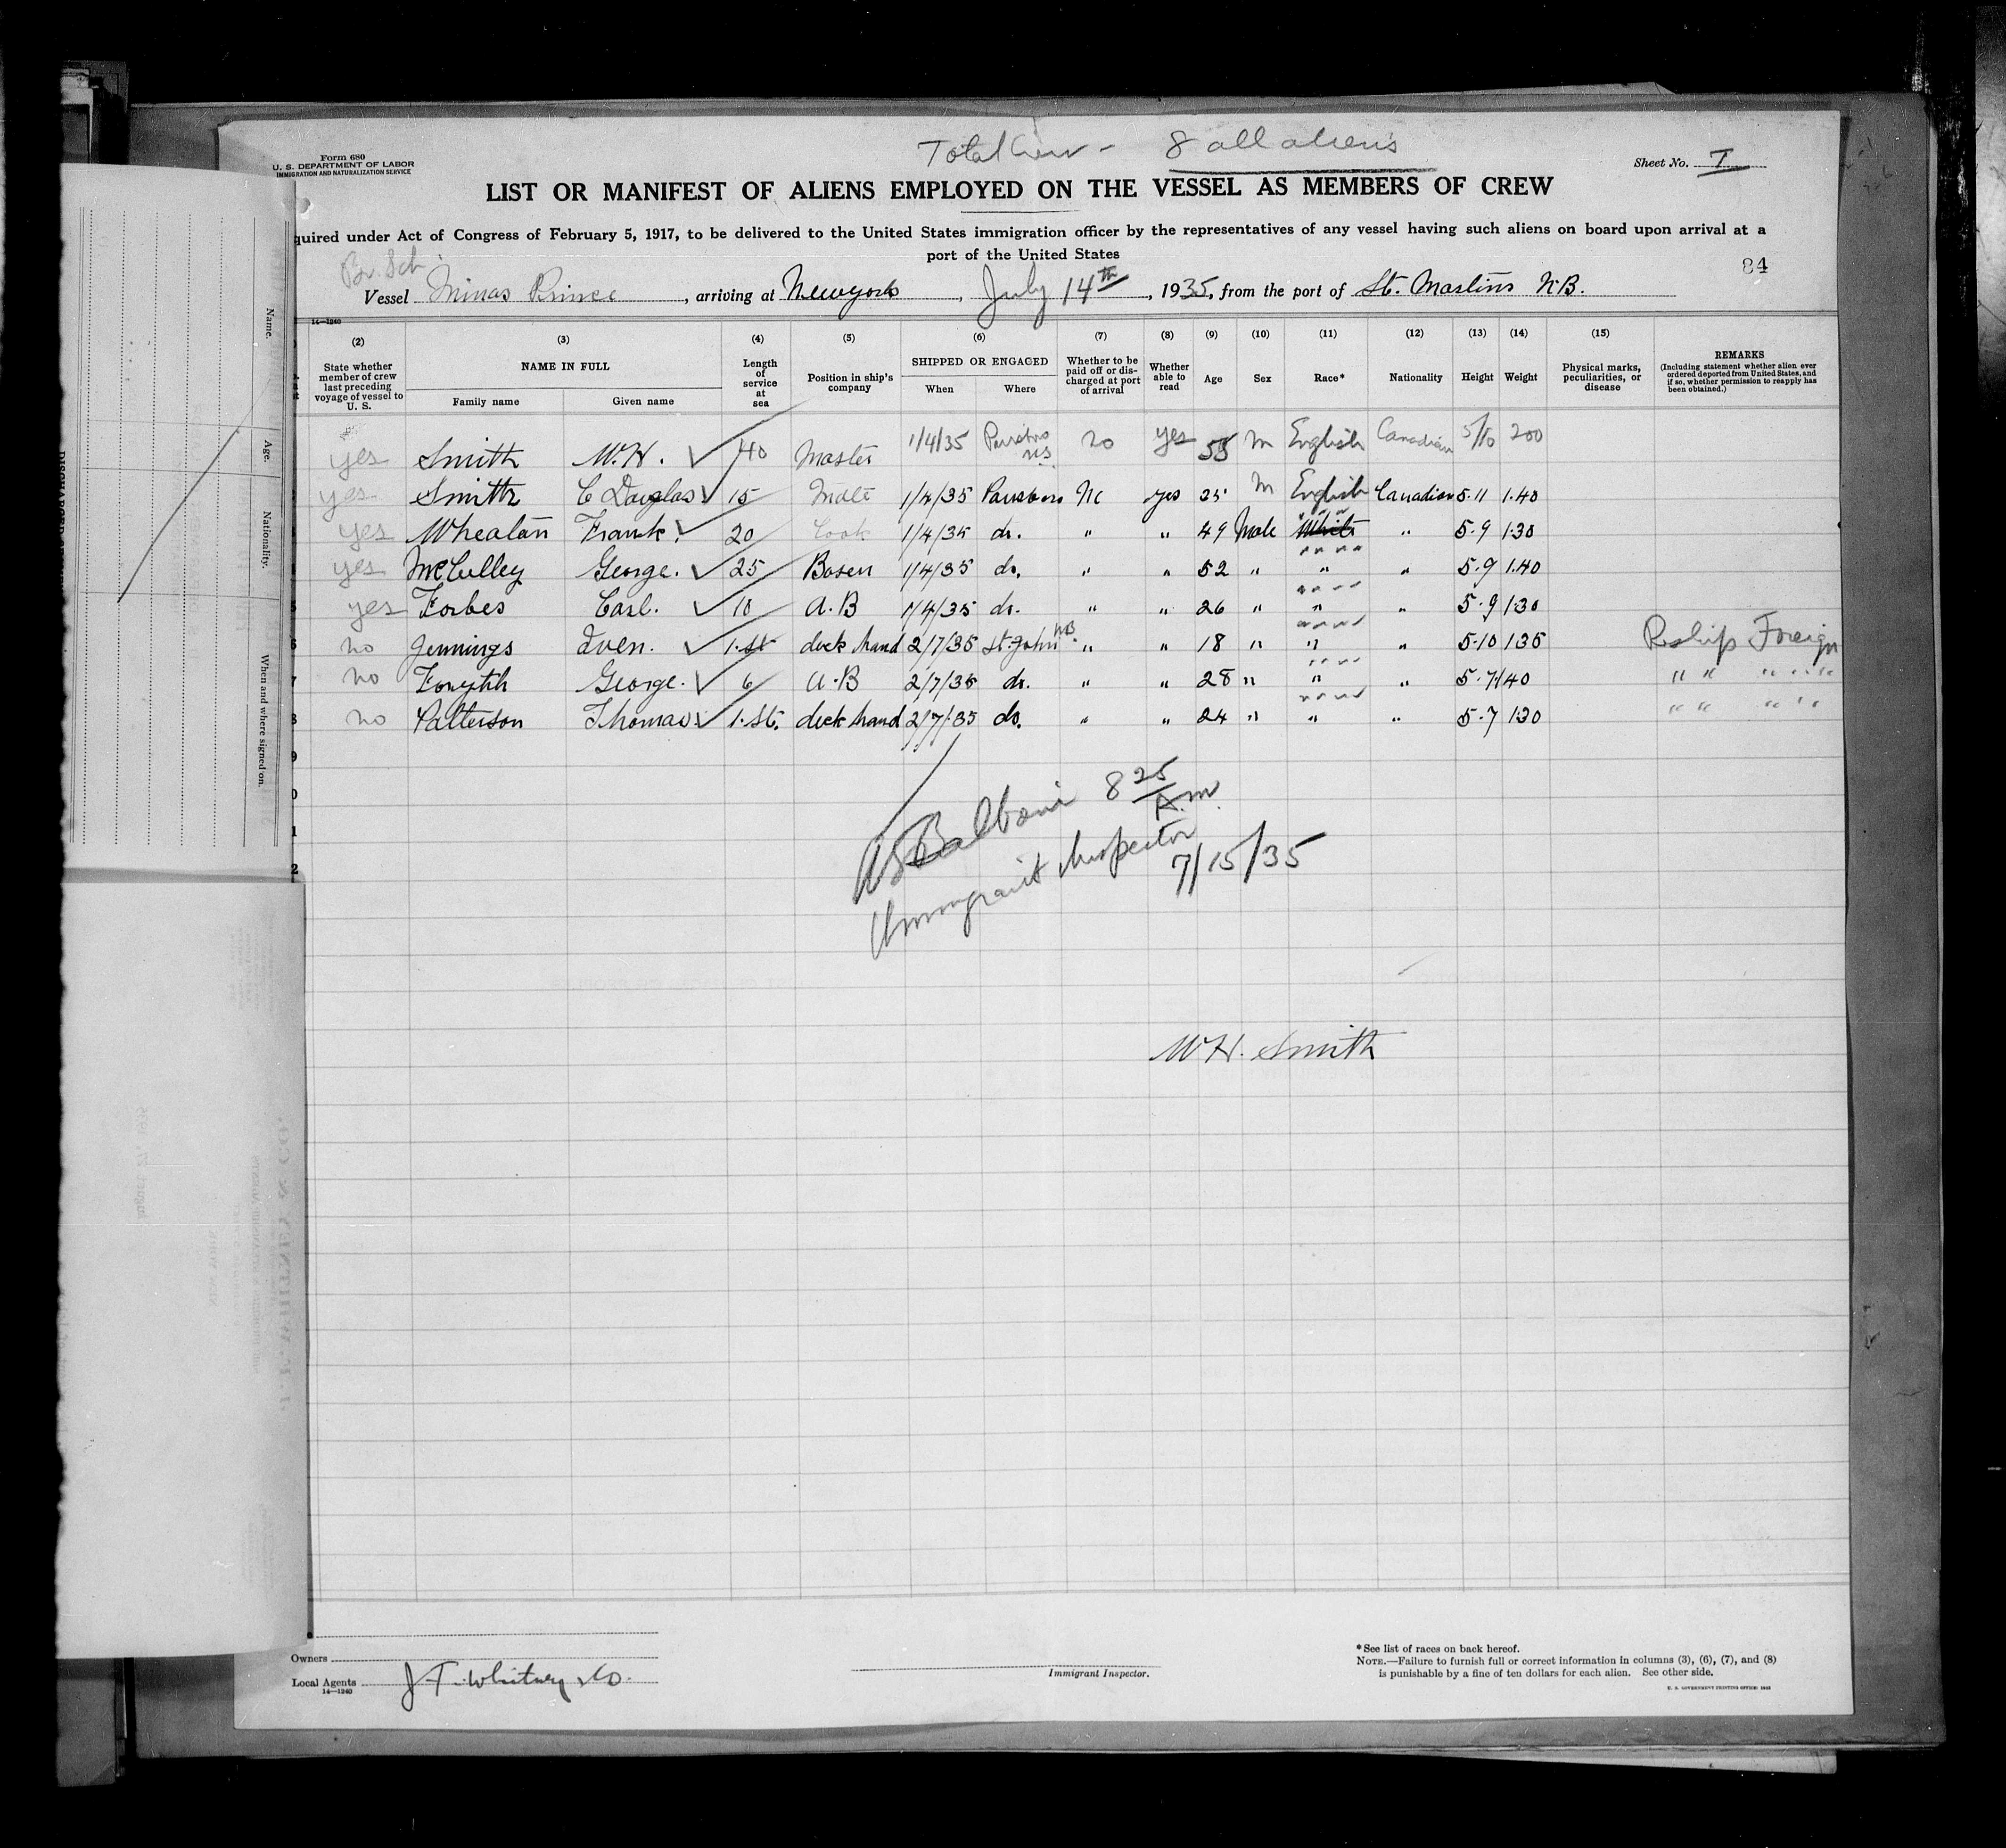 Total Crew - 8 all aliens
Form 680
U. S. DEPARTMENT OF LABOR
IMMIGRATION AND NATURALIZATION SERVICE
Sheet No. I
LIST OR MANIFEST OF ALIENS EMPLOYED ON THE VESSEL AS MEMBERS OF CREW
quired under Act of Congress of February 5, 1917, to be delivered to the United States immigration officer by the representatives of any vessel having such aliens on board upon arrival at a
port of the United States
84
Br. Sch.
Vessel Minas Prince, arriving at New york, July 14th, 1935, from the port of St. Martins N.B.
14—1240
(2) (3) (4) (5) (6) (7) (8) (9) (10) (11) (12) (13) (14) (15)
State whether member of crew last preceding voyage of vessel to U. S.
NAME IN FULL
Family name Given name
Length of service at sea
Position in ship's company
SHIPPED OR ENGAGED
When Where
Whether to be paid off or discharged at port of arrival
Whether able to read
Age Sex Race* Nationality Height Weight
Physical marks, peculiarities, or disease
REMARKS
(Including statement whether alien ever ordered deported from United States, and if so, whether permission to reapply has been obtained.)
yes Smith W.H. 40 Master 1/4/35 Parrsboro N.S. no yes 55 M English Canadian 5/10 200
yes Smith C Douglas 15 Mate 1/4/35 Parrsboro No yes 25 M English Canadian 5.11 1.40
yes Whealan Frank. 20 Cook 1/4/35 do. " " 49 Male White " 5.9 1.30
yes McCulley George. 25 Bosen 1/4/35 do. " " 52 " " " 5.9 1.40
yes Forbes Carl. 10 A.B 1/4/35 do. " " 26 " " " 5.9 1.30
6 no Jennings Iven. 1.st deck hand 2/7/35 St. John NB. " " 18 " " " 5.10 135 Reships Foreign
7 no Forsyth George. 6 A.B 2/7/35 do. " " 28 " " " 5.7 140 " " " "
8 no Patterson Thomas 1.St. deck hand 2/7/35 do. " " 24 " " " 5.7 130 " " " "
9
0
1
2
Balboni 8 25 A.m.
Immigrant Inspector
7/15/35
W.H. Smith
Name.
Age.
Nationality.
When and where signed on.
Owners
Local Agents J. T. Whitney & Co.
14—1240
Immigrant Inspector.
*See list of races on back hereof.
NOTE.—Failure to furnish full or correct information in columns (3), (6), (7), and (8)
is punishable by a fine of ten dollars for each alien. See other side.
U. S. GOVERNMENT PRINTING OFFICE